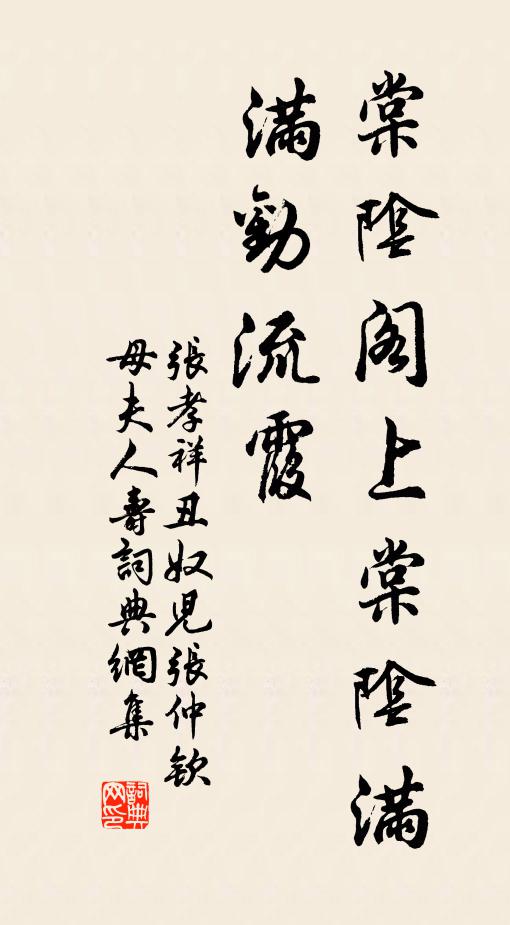 棠陰閣上棠陰滿
滿勸流霞
張孝祥丑奴兒張仲欽
母夫人壽詞典網集
詞典网印